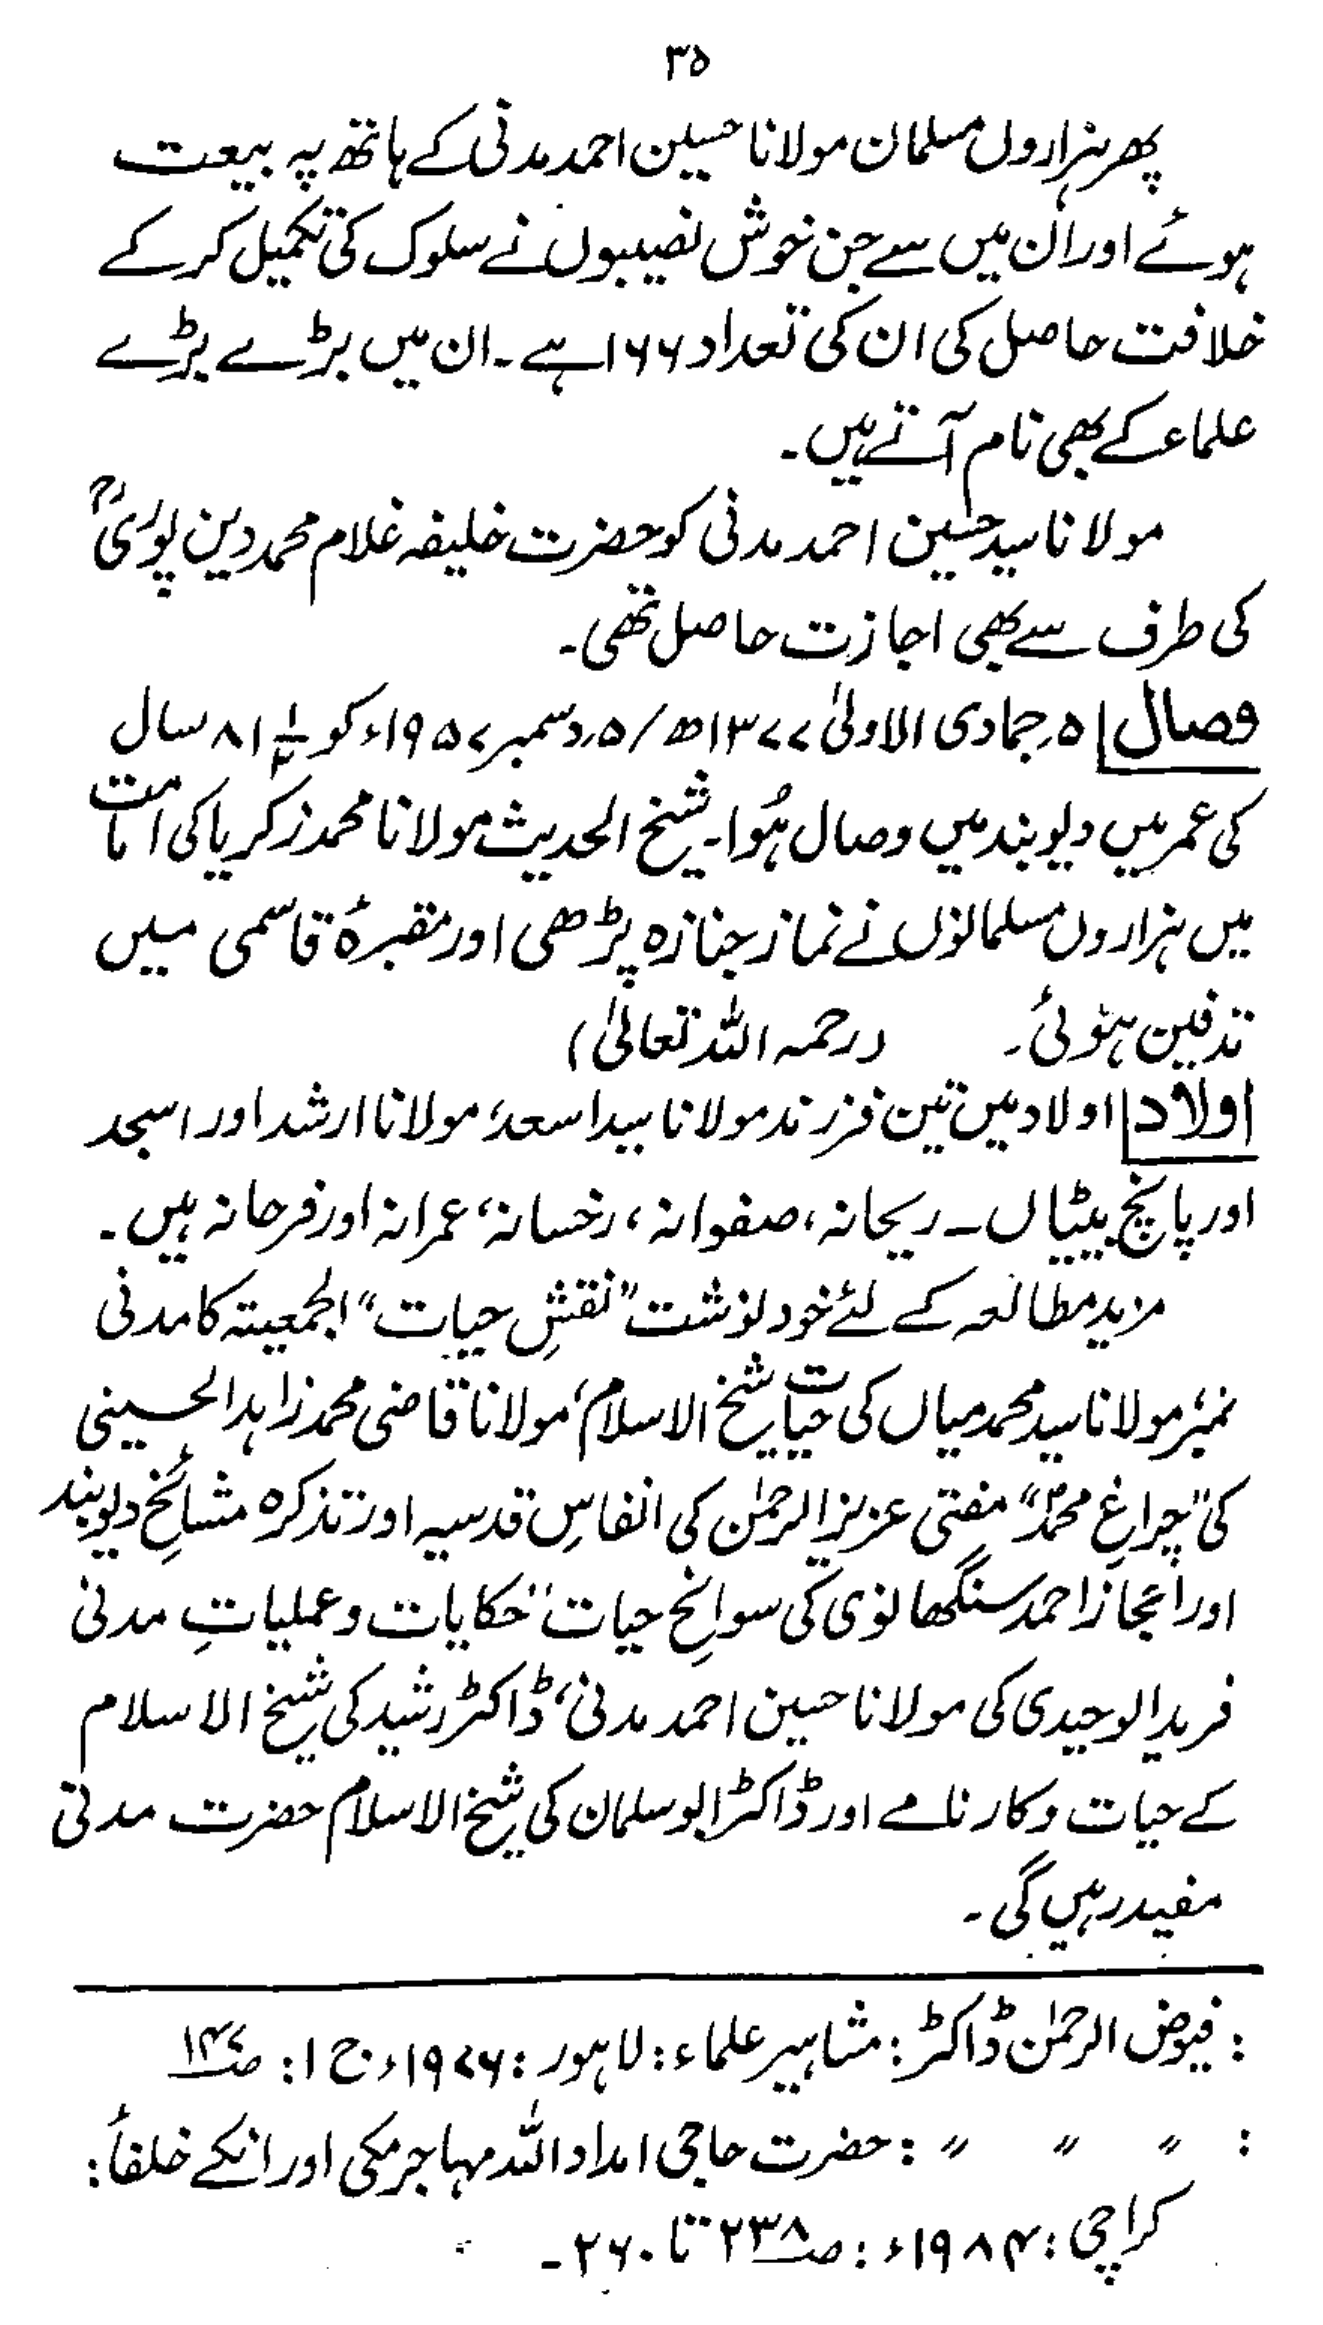 ۳۵
پھر ہزاروں مسلمان مولانا حسین احمد مدنی کے ہاتھ پہ بیعت
ہوئے اور ان میں سے جن خوش نصیبوں نے سلوک کی تکمیل کر کے
خلافت حاصل کی ان کی تعداد ۱۶۶ ہے ۔ ان میں بڑے بڑے
علماء کے بھی نام آتے ہیں ۔
مولانا سید حسین احمد مدنی کو حضرت خلیفہ غلام محمد دین پوریؒ
کی طرف سے بھی اجازت حاصل تھی ۔
وصال | ۵؍ جمادی الاولیٰ ۱۳۷۷ھ / ۵؍ دسمبر ۱۹۵۷ء کو ۸۱ ۱/۲ سال
کی عمر میں دیوبند میں وصال ہُوا ۔ شیخ الحدیث مولانا محمد زکریا کی امامت
میں ہزاروں مسلمانوں نے نماز جنازہ پڑھی اور مقبرۂ قاسمی میں
تدفین ہوئی ۔ (رحمہ اللہ تعالیٰ)
اولاد | اولاد میں تین فرزند مولانا سید اسعد، مولانا ارشد اور اسجد
اور پانچ بیٹیاں ــ ریحانہ، صفوانہ، رخسانہ، عمرانہ اور فرحانہ ہیں ۔
مزید مطالعہ کے لئے خود نوشت "نقشِ حیات" الجمعیتہ کا مدنی
نمبر، مولانا سید محمد میاں کی حیات شیخ الاسلام، مولانا قاضی محمد زاہد الحسینی
کی "چراغِ محمدؐ" مفتی عزیز الرحمٰن کی انفاسِ قدسیہ اور تذکرہ مشائخِ دیوبند
اور اعجاز احمد سنگھانوی کی سوانح حیات" حکایات و عملیاتِ مدنی
فرید الوحیدی کی مولانا حسین احمد مدنی، ڈاکٹر رشید کی شیخ الاسلام
کے حیات و کارنامے اور ڈاکٹر ابو سلمان کی شیخ الاسلام حضرت مدنی
مفید رہیں گی ۔
: فیوض الرحمٰن ڈاکٹر : مشاہیر علماء : لاہور : ۱۹۷۶ء ج ۱ : صـ ۱۴۷
: " " " : حضرت حاجی امداد اللہ مہاجر مکی اور انکے خلفأ :
کراچی : ۱۹۸۴ء : صـ ۲۳۸ تا ۲۶۰ ۔